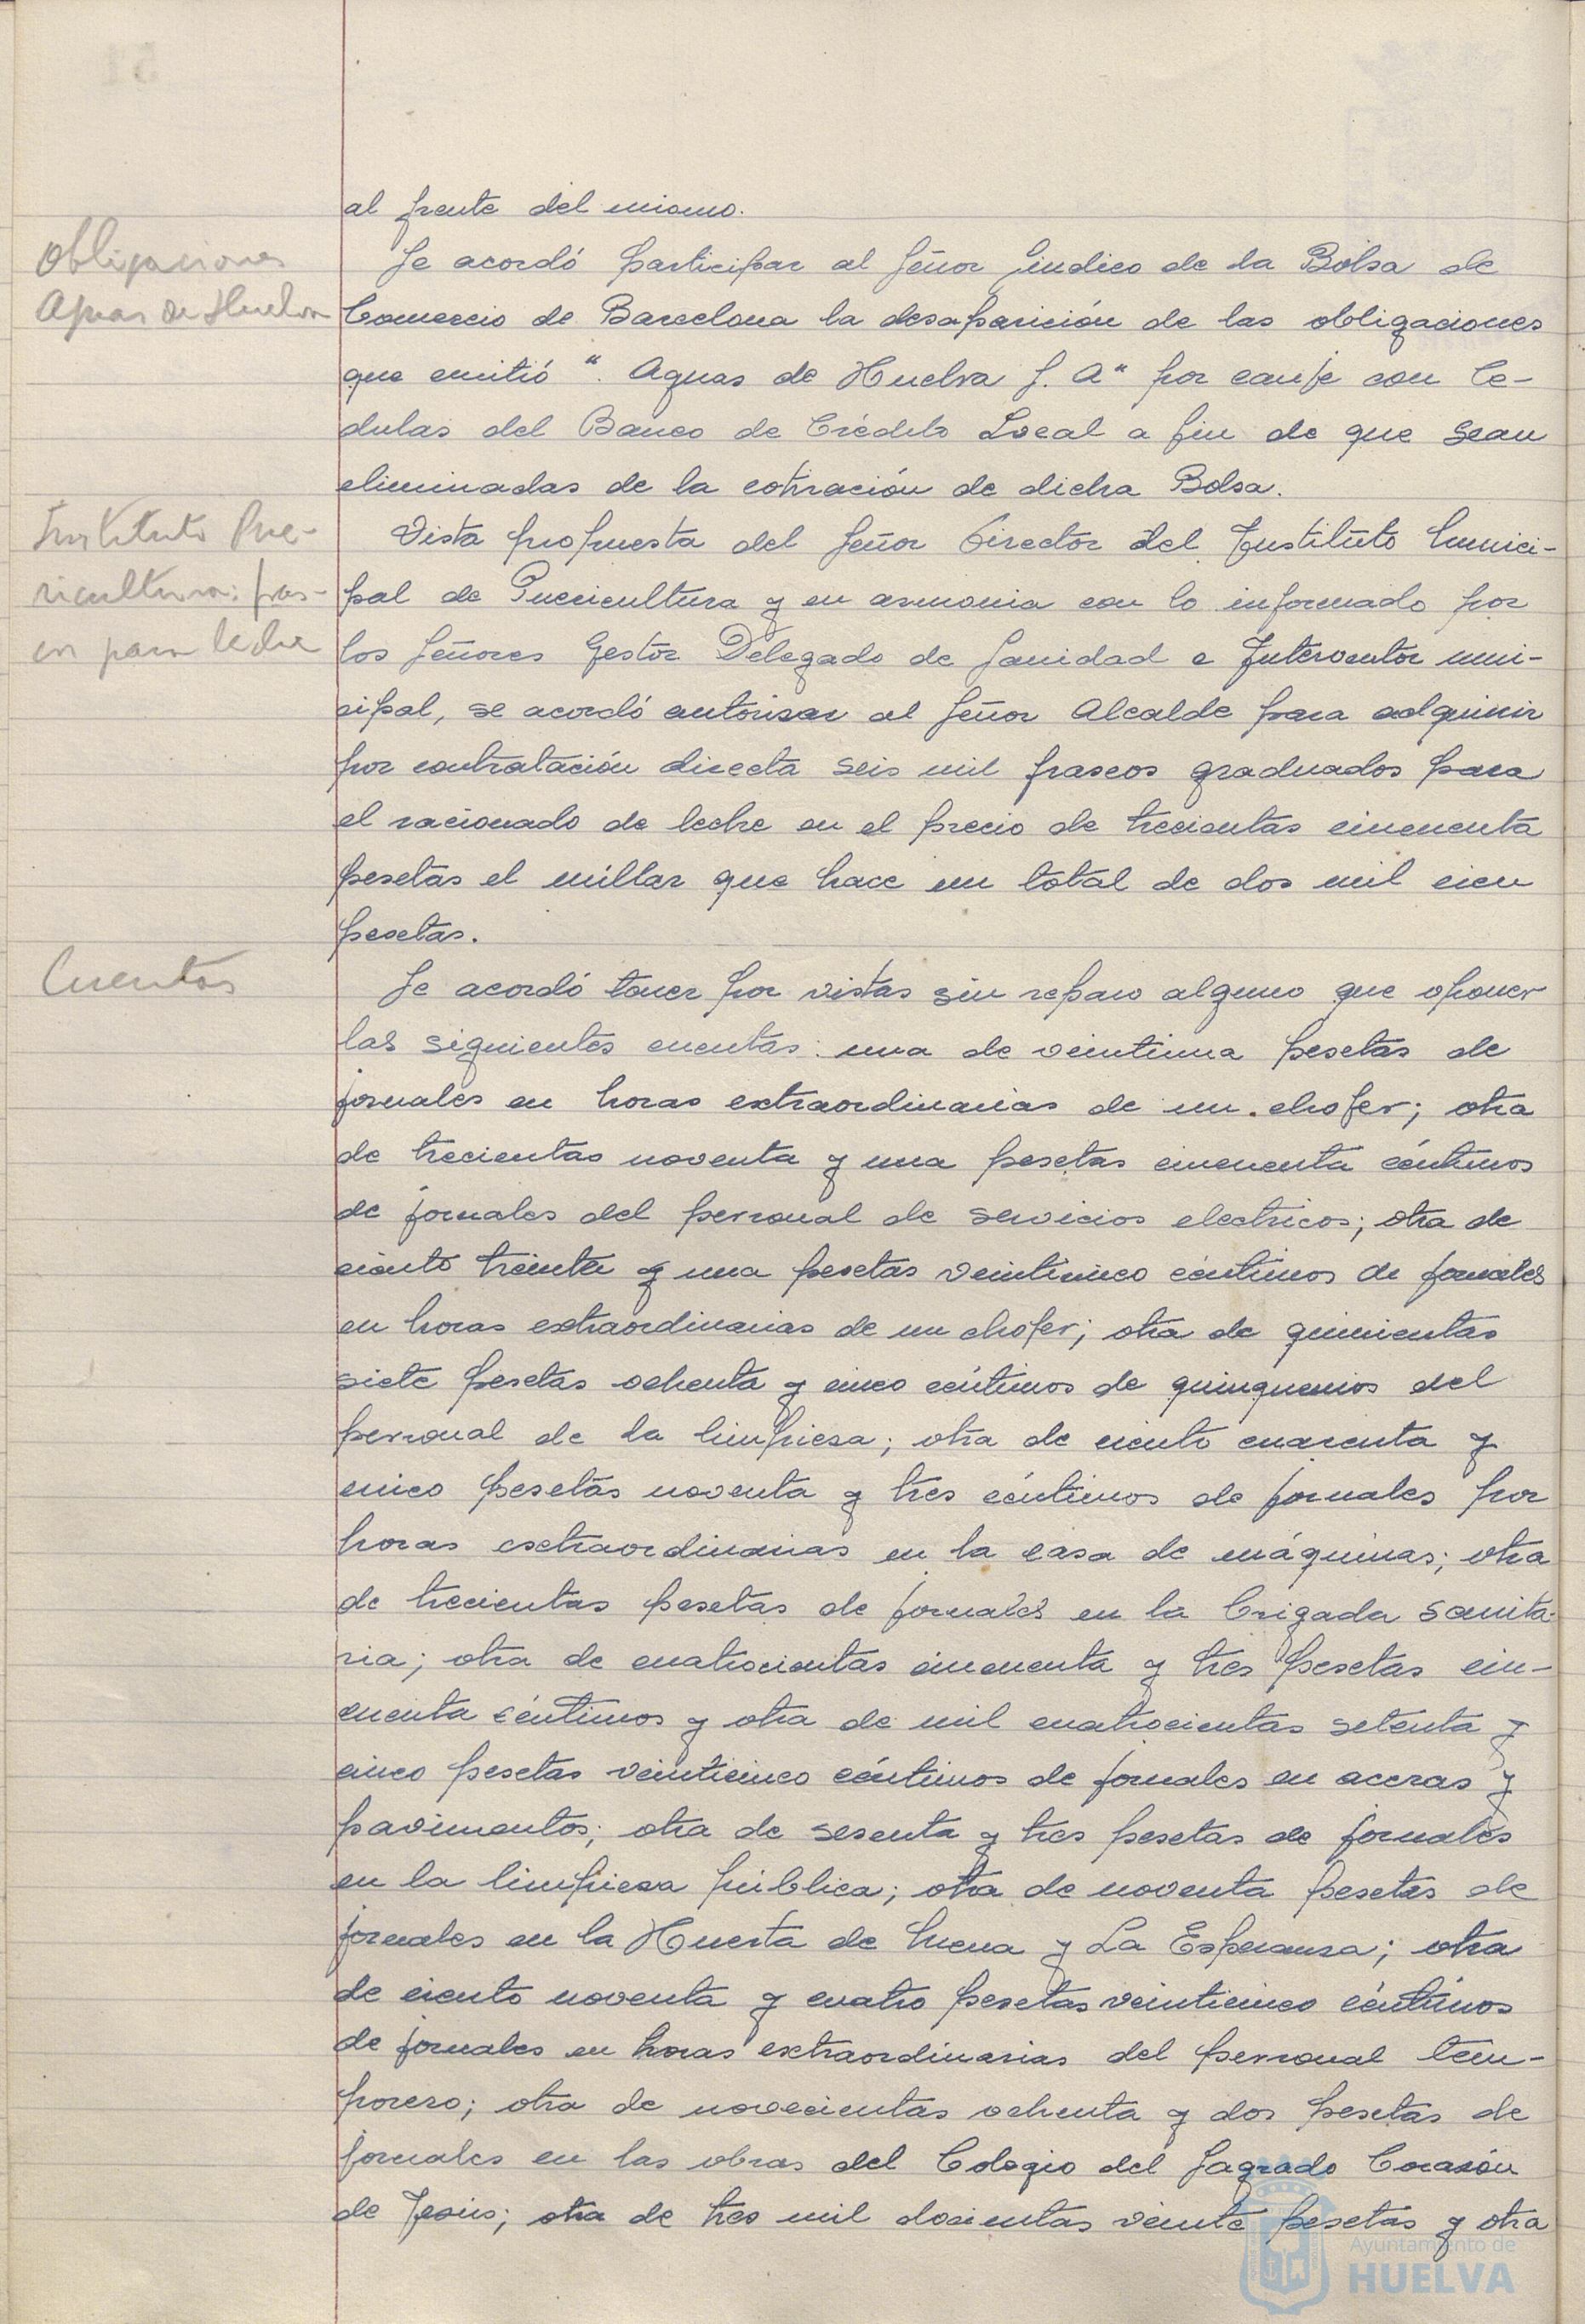 al frente del mismo.
Obligaciones
Aguas de Huelva
Se acordó participar al Señor Sindico de la Bolsa de
Comercio de Barcelona la desaparición de las obligaciones
que emitió "Aguas de Huelva S. A" por canje con Ce-
dulas del Banco de Crédito Local a fin de que sean
eliminadas de la cotización de dicha Bolsa.
Instituto Pue-
ricultura: fras-
cos para leche
Vista propuesta del Señor Director del Instituto Munici-
pal de Puericultura y en armonia con lo informado por
los Señores Gestor Delegado de Sanidad e Interventor muni-
cipal, se acordó autorizar al Señor Alcalde para adquirir
por contratación directa seis mil frascos graduados para
el racionado de leche en el precio de trecientas cincuenta
pesetas el millar que hace un total de dos mil cien
pesetas.
Cuentas
Se acordó tener por vistas sin reparo alguno que oponer
las siguientes cuentas: una de veintiuna pesetas de
jornales en horas extraordinarias de un chofer; otra
de trecientas noventa y una pesetas cincuenta céntimos
de jornales del personal de servicios electricos; otra de
ciento treinta y una pesetas veinticinco céntimos de jornales
en horas extraordinarias de un chofer; otra de quinientas
siete pesetas ochenta y cinco céntimos de quinquenios del
personal de la limpieza; otra de ciento cuarenta y
cinco pesetas noventa y tres céntimos de jornales por
horas extraordinarias en la casa de máquinas; otra
de trecientas pesetas de jornales en la Brigada Sanita-
ria; otra de cuatrocientas cincuenta y tres pesetas cin-
cuenta céntimos y otra de mil cuatrocientas setenta y
cinco pesetas veinticinco céntimos de jornales en aceras y
pavimentos; otra de sesenta y tres pesetas de jornales
en la limpieza pública; otra de noventa pesetas de
jornales en la Huerta de Mena y La Esperanza; otra
de ciento noventa y cuatro pesetas veinticinco céntimos
de jornales en horas extraordinarias del personal tem-
porero; otra de novecientas ochenta y dos pesetas de
jornales en las obras del Colegio del Sagrado Corazón
de Jesús; otra de tres mil docientas veinte pesetas y otra
Ayuntamiento de
HUELVA